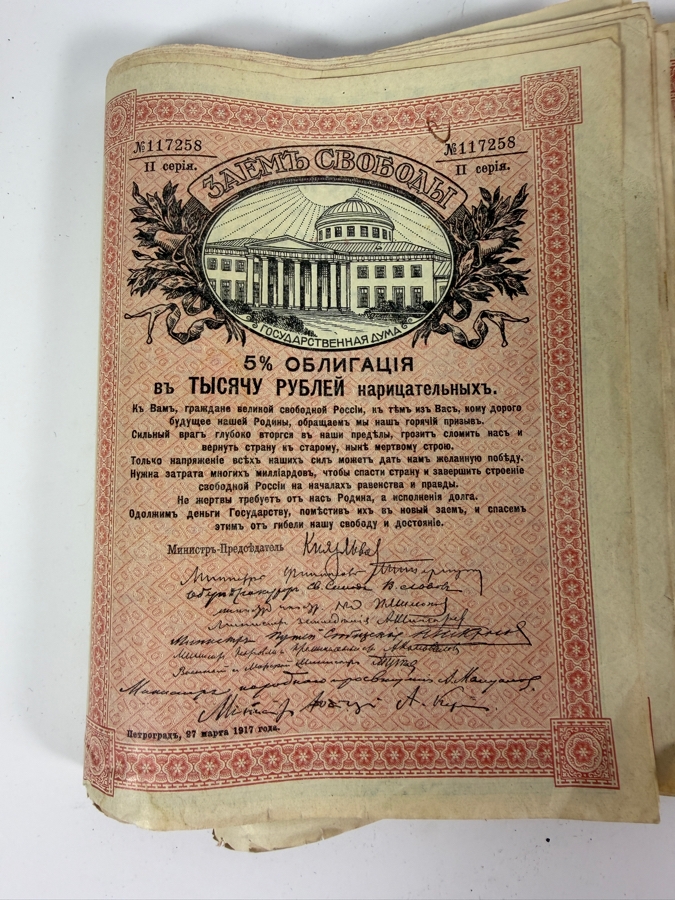 №117258
II серія.
№117258
II серія.
ЗАЕМЪ СВОБОДЫ
ГОСУДАРСТВЕННАЯ ДУМА
5% ОБЛИГАЦІЯ
въ ТЫСЯЧУ РУБЛЕЙ нарицательныхъ.
Къ Вамъ, граждане великой свободной Россіи, къ тѣмъ изъ Васъ, кому дорого
будущее нашей Родины, обращаемъ мы нашъ горячій призывъ.
Сильный врагъ глубоко вторгся въ наши предѣлы, грозитъ сломить насъ и
вернуть страну къ старому, нынѣ мертвому строю.
Только напряженіе всѣхъ нашихъ силъ можетъ дать намъ желанную побѣду.
Нужна затрата многихъ милліардовъ, чтобы спасти страну и завершить строеніе
свободной Россіи на началахъ равенства и правды.
Не жертвы требуетъ отъ насъ Родина, а исполненія долга.
Одолжимъ деньги Государству, помѣстивъ ихъ въ новый заемъ, и спасемъ
этимъ отъ гибели нашу свободу и достояніе.
Министръ-Предсѣдатель Князь Львовъ
Министръ Финансовъ
Министръ Путей Сообщенія
Министръ народнаго просвѣщенія А. Мануиловъ
Петроградъ, 27 марта 1917 года.